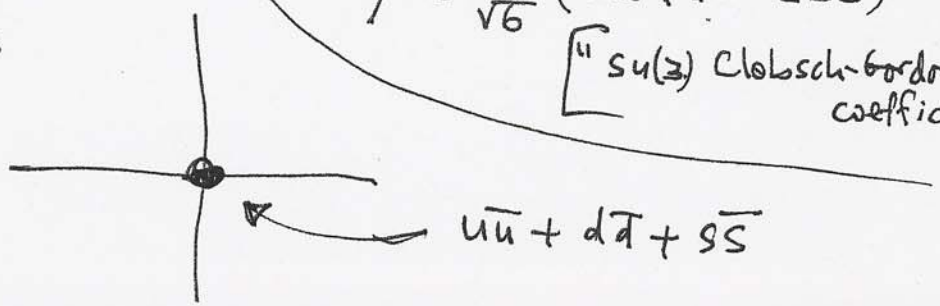 √6
[" SU(3) Clebsch-Gordo
coeffic
uū + dd̄ + ss̄